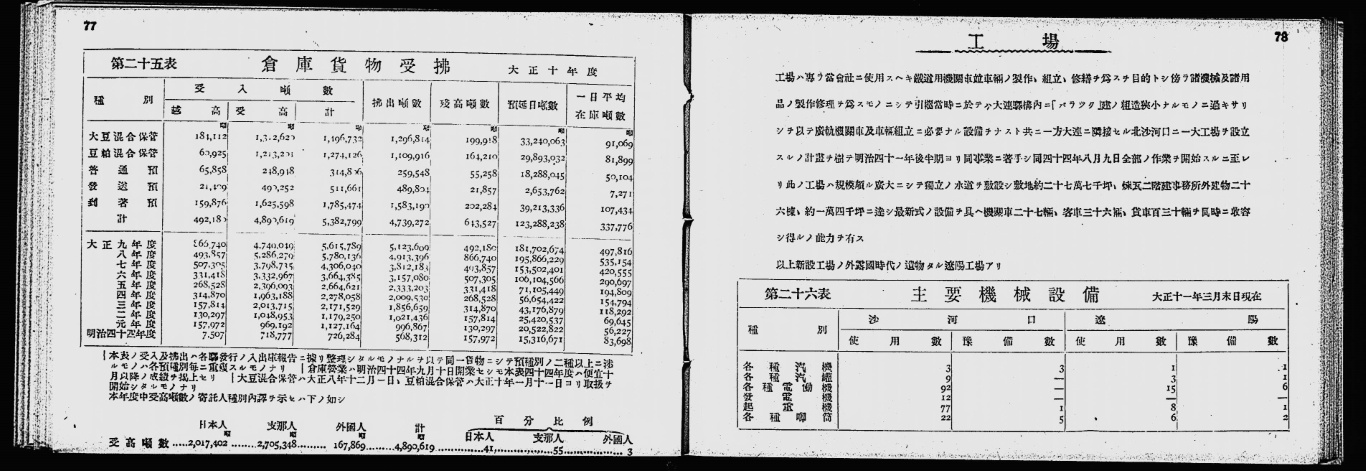 77
第二十五表 倉庫貨物受拂 大正十年度
種別 受入噸數 拂出噸數 殘高噸數 預延日噸數 一日平均在庫噸數
越高 受高 計
大豆混合保管 181,112 1,296,814 199,918 33,240,063 91,069
豆粕混合保管 60,925 1,274,126 1,109,916 164,210 29,893,032 81,899
普通預 65,858 248,918 259,548 55,258 18,288,045 50,104
發送預 490,252 511,661 489,804 21,857 2,653,762 7,271
到著預 159,876 1,625,598 1,785,474 1,583,190 202,284 39,213,336 107,434
計 4,890,619 5,382,799 4,739,272 643,527 123,288,238 337,776
大正九年度 866,740 4,740,049 5,615,789 5,123,609 492,180 181,702,674 497,816
八年度 493,857 5,286,279 5,780,136 4,913,396 866,740 195,866,229 535,154
七年度 507,305 3,798,735 4,306,040 3,812,183 493,857 153,502,401 420,555
六年度 331,418 3,332,967 3,664,385 3,157,080 507,305 106,104,566 290,697
五年度 268,528 2,396,093 2,664,621 2,333,203 331,418 71,105,449 194,809
四年度 314,870 1,963,188 2,278,058 2,009,530 268,528 56,654,422 154,794
三年度 157,814 2,013,715 2,171,529 1,856,659 314,870 43,176,879 118,292
二年度 130,297 1,048,953 1,179,250 1,021,436 157,814 25,420,537 69,645
元年度 157,972 969,192 1,127,164 996,867 130,297 20,522,822 56,227
明治四十四年度 7,507 718,777 726,284 568,312 157,972 15,316,671 83,698
本表ノ受入及拂出ハ各驛發行ノ入出庫報告ニ據リ整理シタルモノナルヲ以テ同一貨物ニシテ預種別ノ二種以上ニ涉
ルモノハ各預種別每ニ重複スルモノナリ 倉庫營業ハ明治四十四年九月十日開業セシモ本表四十四年度ハ便宜十
月以降ノ成績ヲ揭上セリ 大豆混合保管ハ大正八年十二月一日、豆粕混合保管ハ大正十年一月十一日ヨリ取扱ヲ
開始シタルモノナリ
本年度中受高噸數ノ寄託人種別內譯ヲ示セハ下ノ如シ
日本人 支那人 外國人 計 百分比例
日本人 支那人 外國人
受高噸數 2,017,402 2,705,348 167,869 4,890,619 41 55 3
78
工場
工場ハ專ラ當會社ニ使用スヘキ鐵道用機關車竝車輛ノ製作、組立、修繕ヲ爲スヲ目的トシ傍ラ諸機械及諸用
品ノ製作修理ヲ爲スモノニシテ引繼當時ニ於テハ大連驛構內ニ「バラツク」建ノ粗造狹小ナルモノニ過キサリ
シヲ以テ廣軌機關車及車輛組立ニ必要ナル設備ヲナスト共ニ一方大連ニ隣接セル北沙河口ニ一大工場ヲ設立
スルノ計畫ヲ樹テ明治四十一年後半期ヨリ同事業ニ著手シ同四十四年八月九日全部ノ作業ヲ開始スルニ至レ
リ此ノ工場ハ規模頗ル廣大ニシテ獨立ノ水道ヲ敷設シ敷地約二十七萬七千坪、煉瓦二階建事務所外建物二十
六棟、約一萬四千坪ニ達シ最新式ノ設備ヲ具ヘ機關車二十七輛、客車三十六輛、貨車百三十輛ヲ同時ニ收容
シ得ルノ能力ヲ有ス
以上新設工場ノ外露國時代ノ遺物タル遼陽工場アリ
第二十六表 主要機械設備 大正十一年三月末日現在
種別 沙河口 遼陽
使用數 豫備數 使用數 豫備數
各種汽機 3 3 1 1
各種汽罐 9 — 3 1
各種電働機 92 — 15 6
發電機 12 — — —
起重機 77 1 8 1
各種喞筒 22 5 6 2